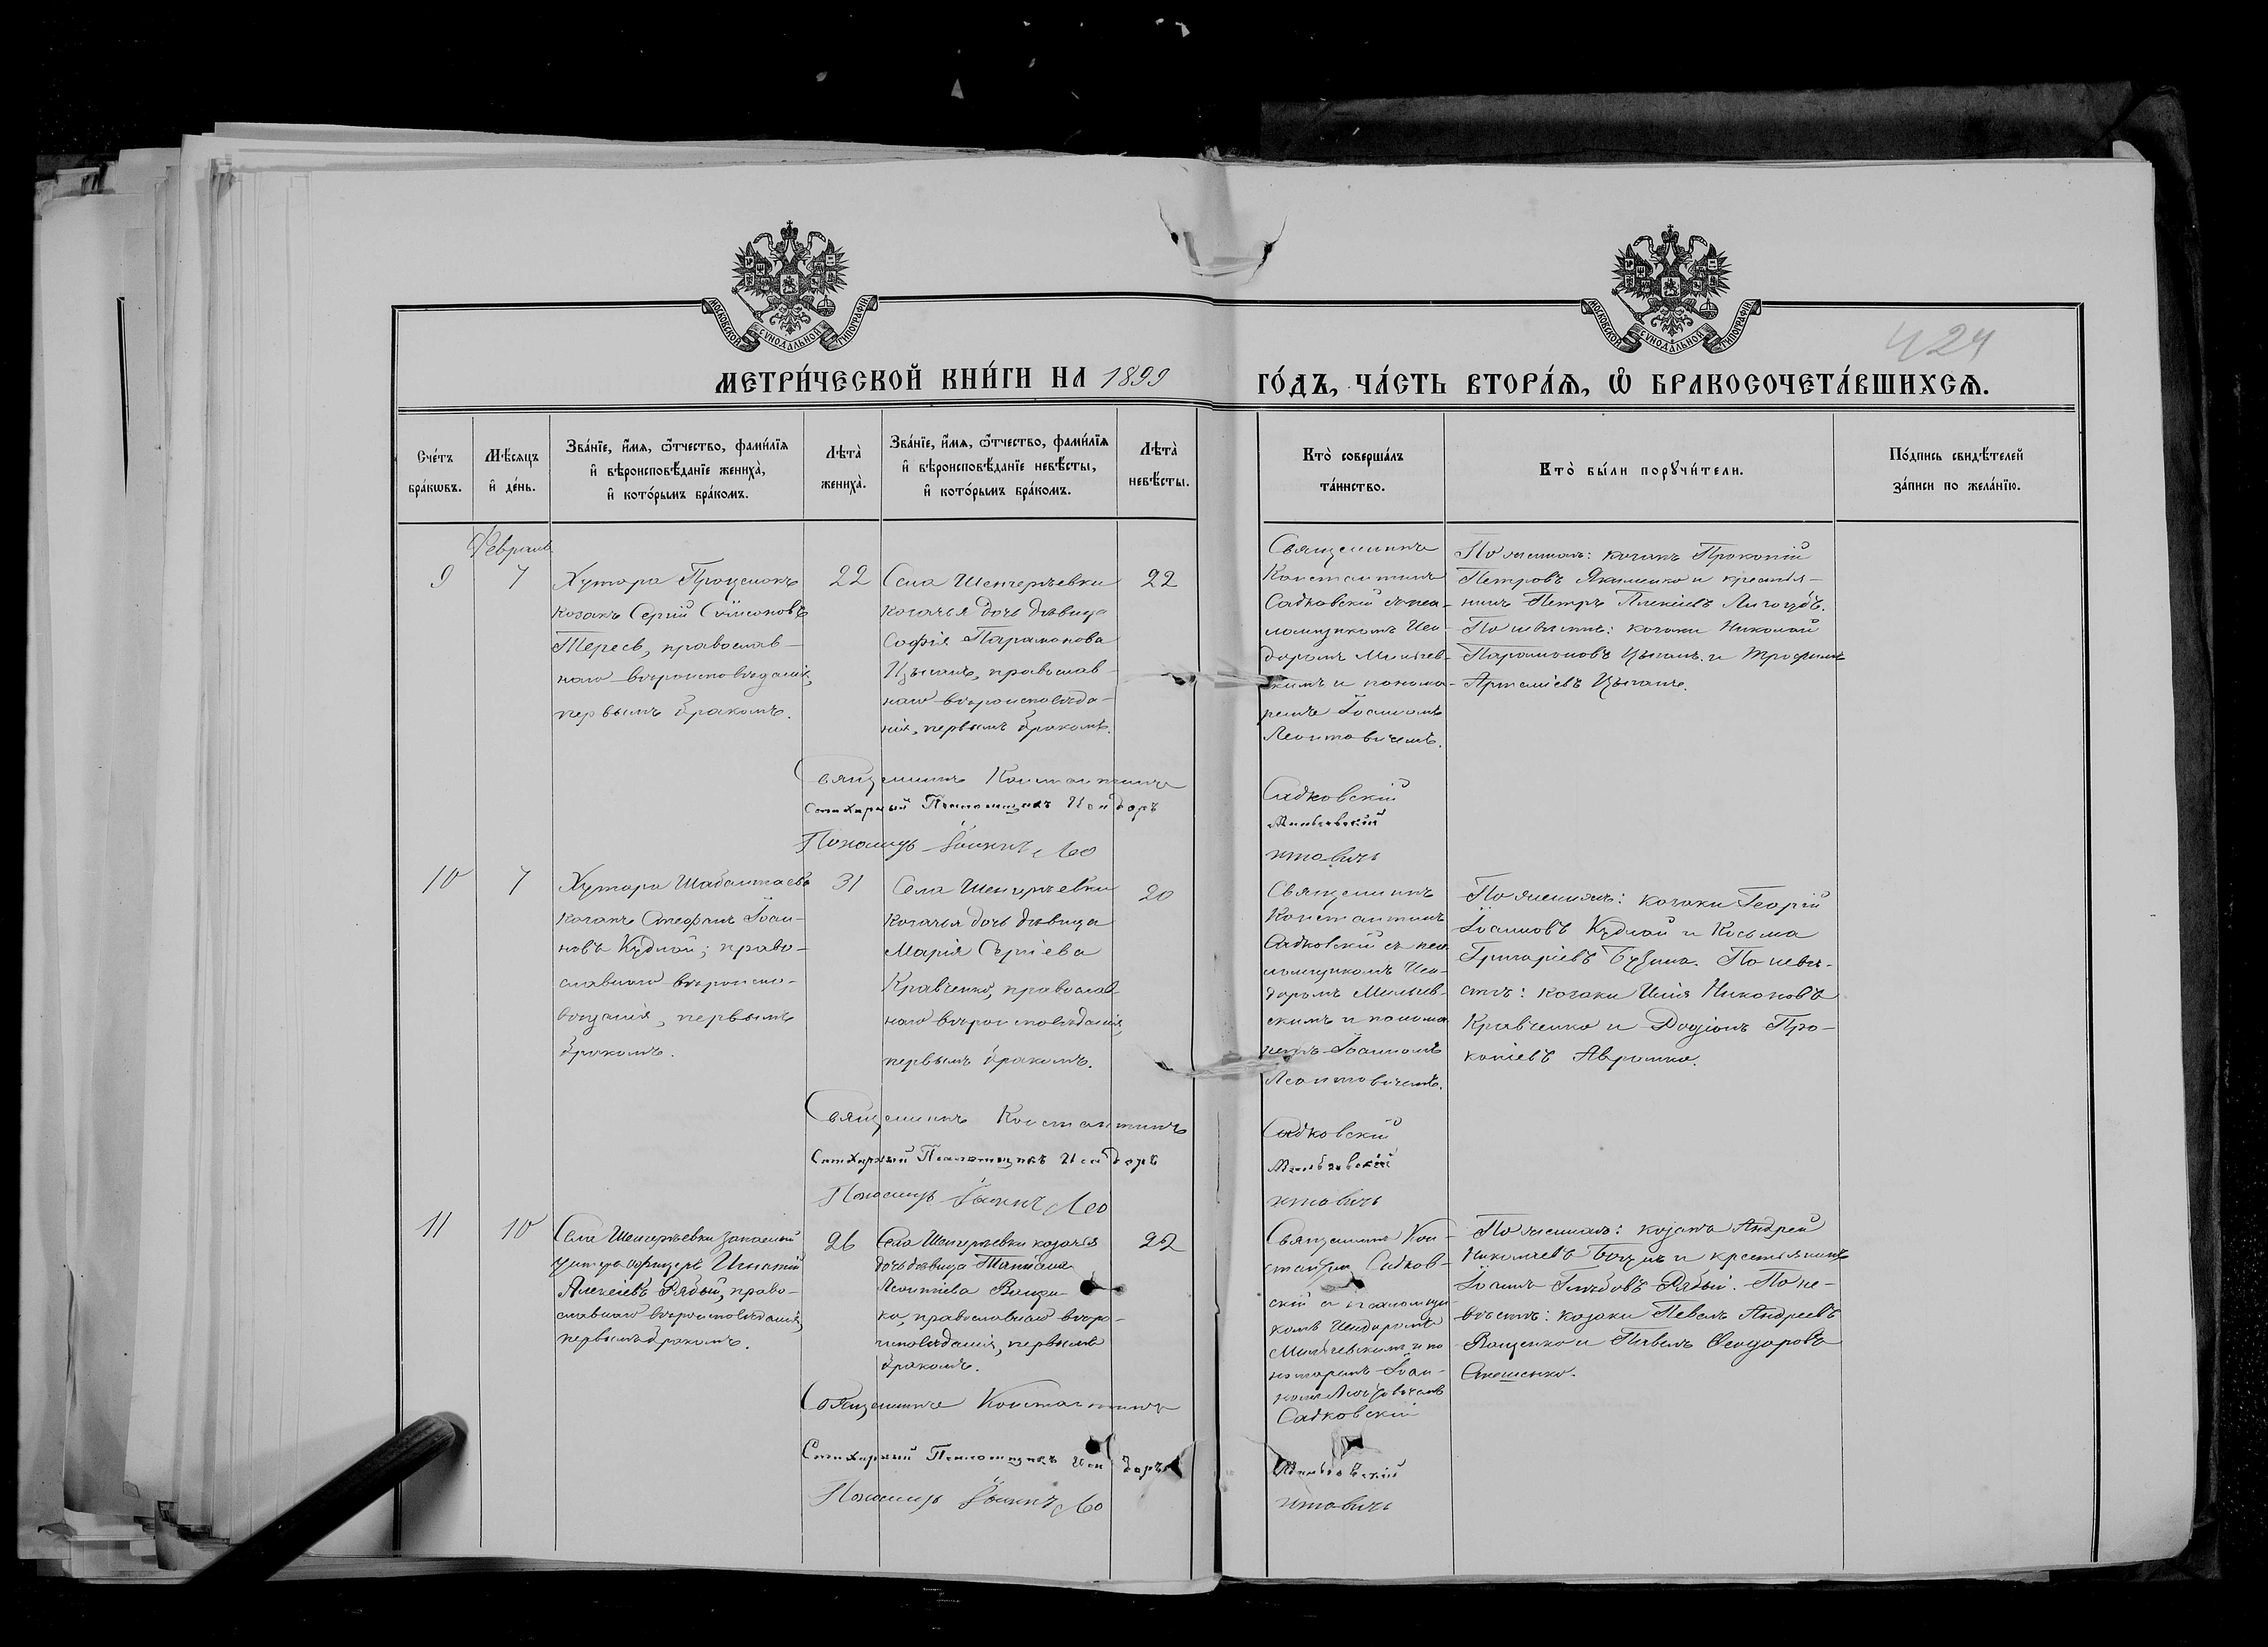 МОСКОВСКОЙ СѴНОДАЛЬНОЙ ТИПОГРАФІИ
МОСКОВСКОЙ СѴНОДАЛЬНОЙ ТИПОГРАФІИ
424
МЕТРИ́ЧЕСКОЙ КНИ́ГИ НА 1899 ГО́ДЪ, ЧА́СТЬ ВТОРА́Я, Ѡ БРАКОСОЧЕТА́ВШИХСѦ.
Сче́тъ бра́кѡвъ.
Мѣ́сяцъ и҆ де́нь.
Зва́нїе, и҆́мѧ, ѻ҆́тчество, фами́лїѧ и҆ вѣроисповѣ́данїе жениха̀, и҆ кото́рымъ бра́комъ.
Лѣта̀ жениха̀.
Зва́нїе, и҆́мѧ, ѻ҆́тчество, фами́лїѧ и҆ вѣроисповѣ́данїе невѣ́сты, и҆ кото́рымъ бра́комъ.
Лѣта̀ невѣ́сты.
Кто̀ соверша́лъ та́инство.
Кто̀ бы́ли порꙋчи́тели.
По́дпись свидѣ́телей за́писи по жела́нїю.
Февраль
9
7
Хутора Проценокъ
козакъ Сергій Сѵмеоновъ
Тересь, православ-
наго вѣроисповѣданія,
первымъ бракомъ.
22
Села Шенгерѣевки
козачья дочь дѣвица
Софія Парамонова
Цыганъ, православ-
наго вѣроисповѣда-
нія, первымъ бракомъ.
22
Священникъ
Константинъ
Садковскій съ пса-
ломщикомъ Иси-
доромъ Мильгев-
скимъ и понома-
ремъ Іоанномъ
Леонтовичемъ.
По женихѣ: козакъ Прокопій
Петровъ Якименко и крестья-
нинъ Петръ Алексіевъ
По невѣстѣ: козаки Николай
Парамоновъ Цыганъ и Трофимъ
Артеміевъ Цыганъ.
Священникъ Константинъ Садковскій
Стихарный Псаломщикъ Исидоръ Мильгевскій
Пономарь Іоаннъ Леонтовичъ
10
7
Хутора Шабалтаевъ
козакъ Стефанъ Іоан-
новъ Кудлай; право-
славнаго вѣроиспо-
вѣданія, первымъ
бракомъ.
31
Села Шенгерѣевки
козачья дочь дѣвица
Марія Сергіева
Кравченко, православ-
наго вѣроисповѣданія,
первымъ бракомъ.
20
Священникъ
Константинъ
Садковскій съ пса-
ломщикомъ Иси-
доромъ Мильгев-
скимъ и понома-
ремъ Іоанномъ
Леонтовичемъ.
По женихѣ: козаки Георгій
Іоанновъ Кудлай и Косьма
Григоріевъ Бузина. По невѣ-
стѣ: козаки Илія Никоновъ
Кравченко и Родіонъ Про-
копіевъ Авраменко.
Священникъ Константинъ Садковскій
Стихарный Псаломщикъ Исидоръ Мильгевскій
Пономарь Іоаннъ Леонтовичъ
11
10
Села Шенгерѣевки запасный
унтеръ офицеръ Игнатій
Алексіевъ Рябый, право-
славнаго вѣроисповѣданія,
первымъ бракомъ.
26
Села Шенгерѣевки козачья
дочь дѣвица Татіана
Леонтіева Ващен-
ко, православнаго вѣро-
исповѣданія, первымъ
бракомъ.
22
Священникъ Кон-
стантинъ Садков-
скій съ псаломщи-
комъ Исидоромъ
Мильгевскимъ и по-
номаремъ Іоан-
номъ Леонтовичемъ
По женихѣ: козакъ Андрей
Николаевъ и крестьянинъ
Іоаннъ Глѣбовъ Рябый. По не-
вѣстѣ: козаки Павелъ Андреевъ
Ващенко и Павелъ Ѳеодоровъ
Священникъ Константинъ Садковскій
Стихарный Псаломщикъ Исидоръ Мильгевскій
Пономарь Іоаннъ Леонтовичъ